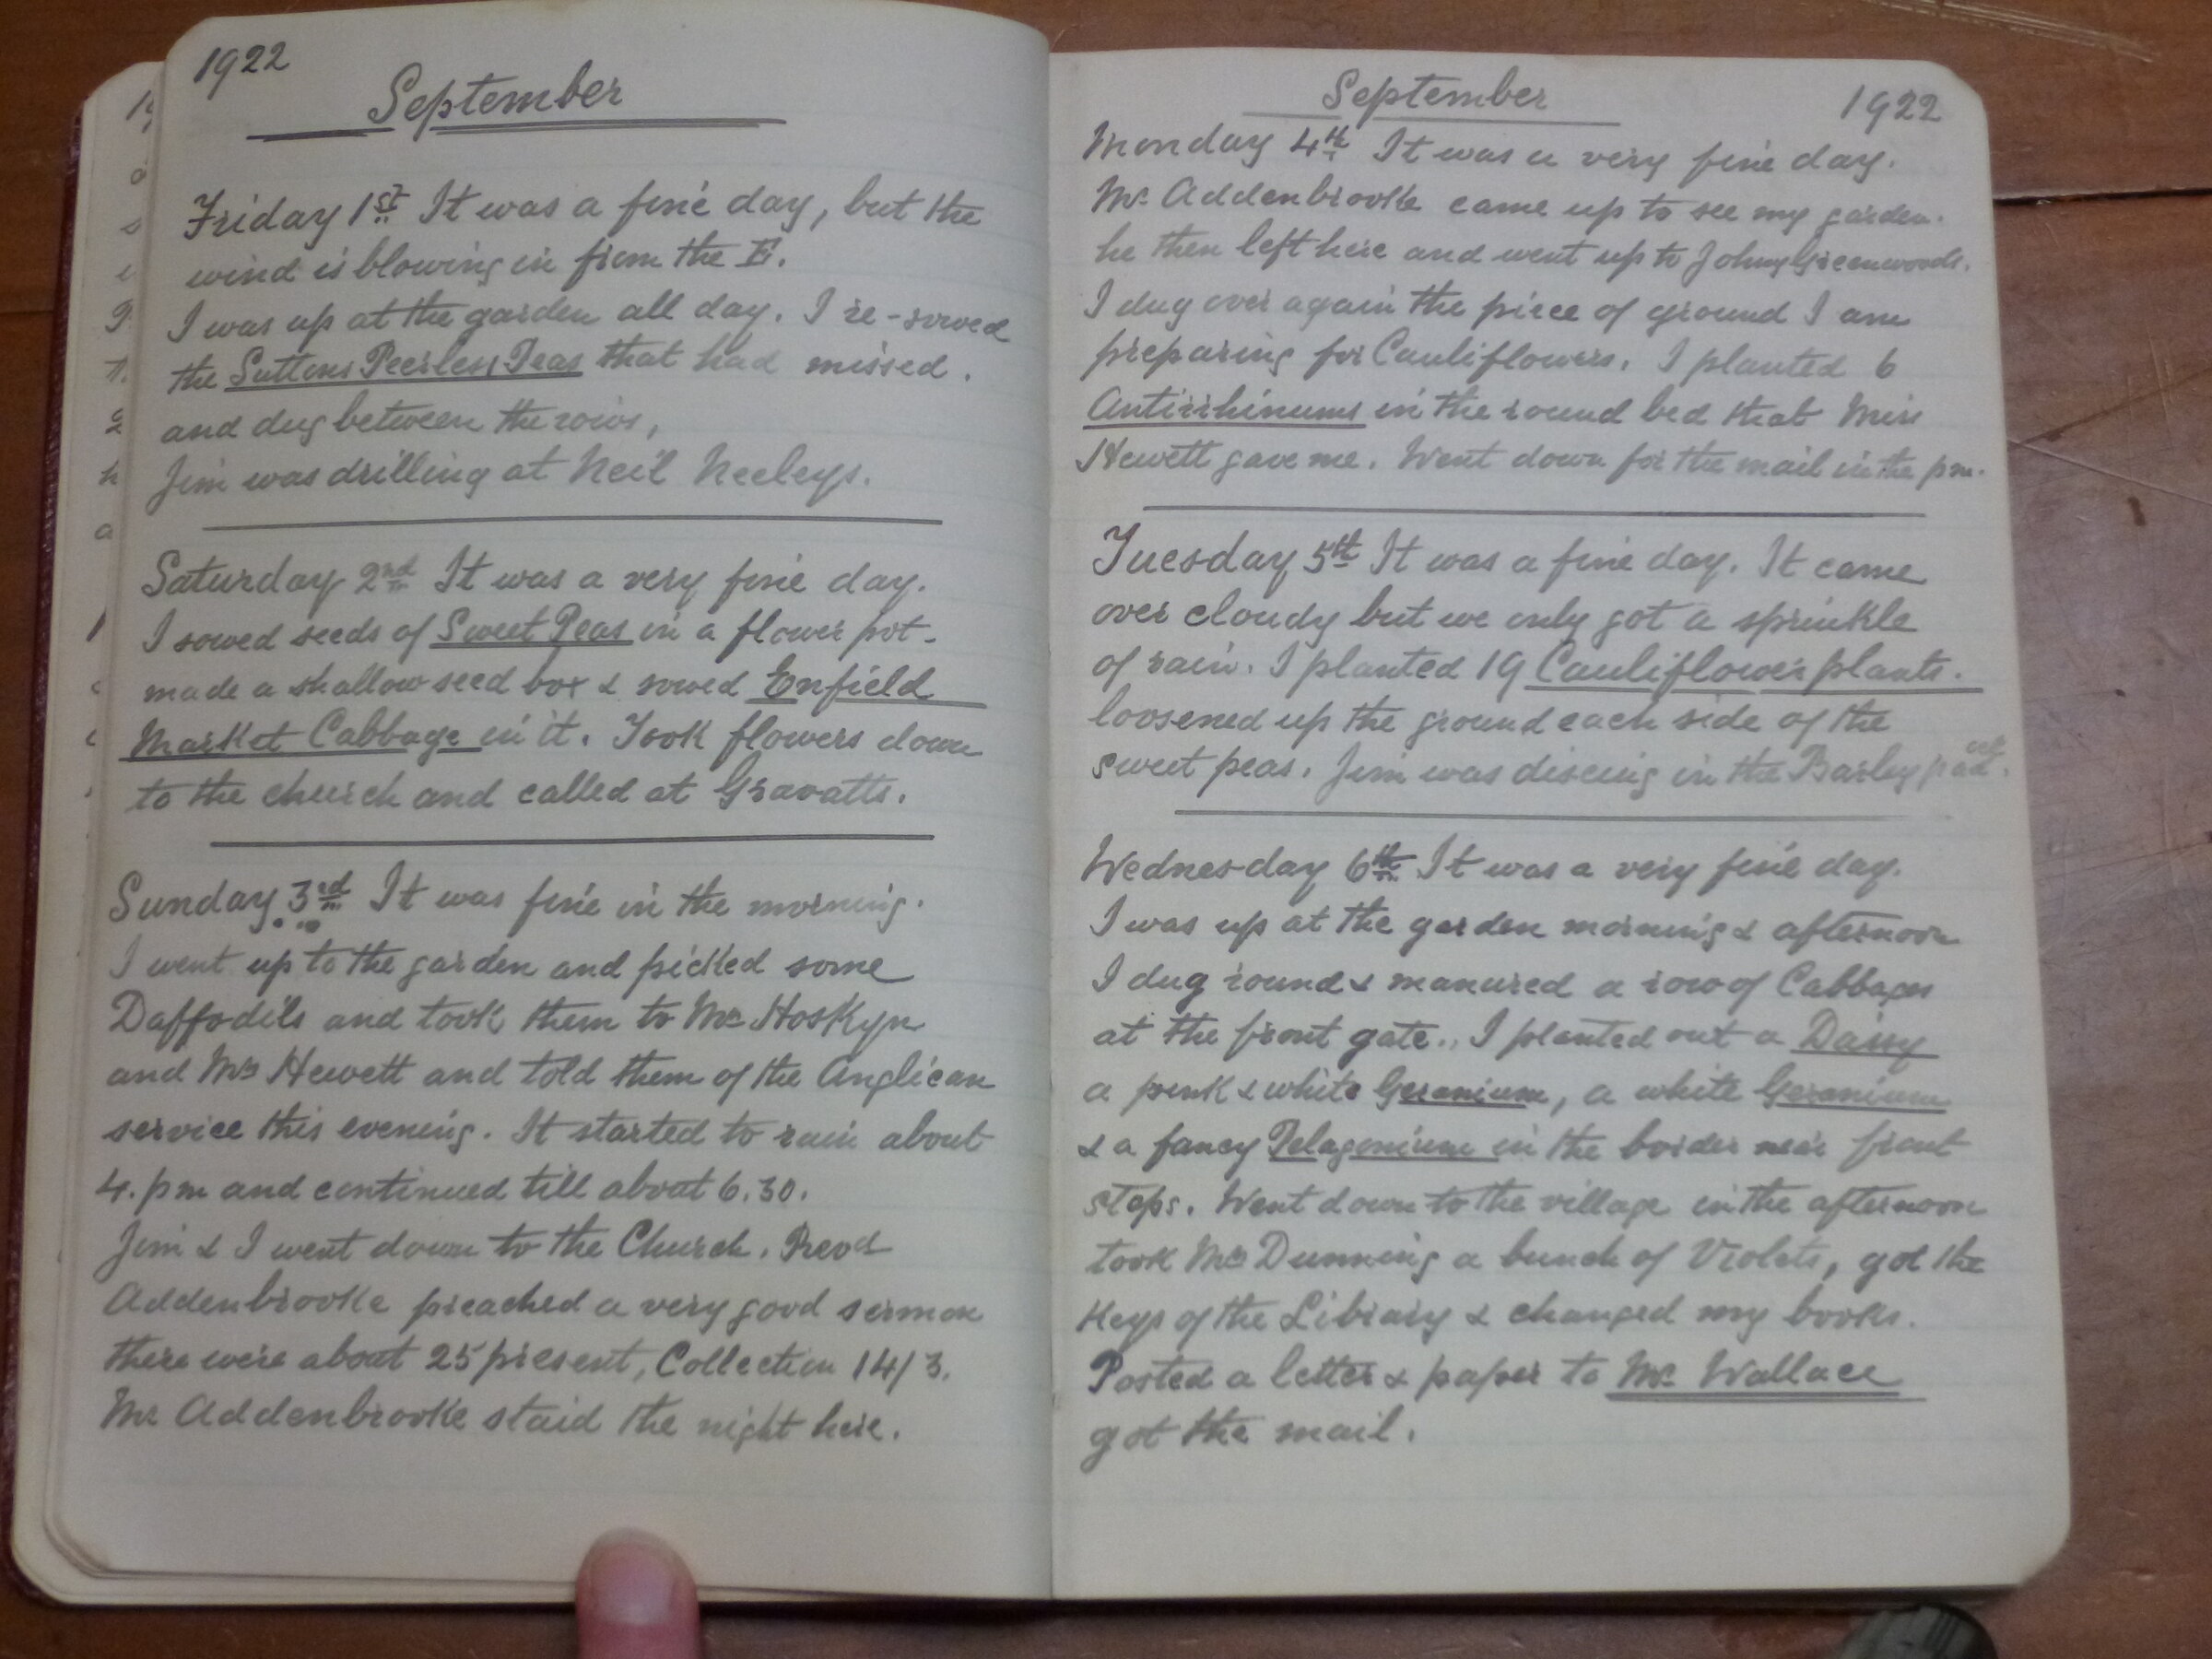 1922
September
Friday 1st It was a fine day, but the
wind is blowing in from the E.
I was up at the garden all day. I re-sowed
the Suttons Peerless Peas that had missed.
and dug between the rows,
Jim was drilling at Neil Neeleys.
Saturday 2nd It was a very fine day.
I sowed seeds of Sweet Peas in a flower pot.
made a shallow seed box & sowed Enfield
Market Cabbage in it. Took flowers down
to the church and called at Gravatts.
Sunday 3rd It was fine in the morning.
I went up to the garden and picked some
Daffodils and took them to Mrs Hoskyn
and Mrs Hewett and told them of the Anglican
service this evening. It started to rain about
4. pm and continued till about 6.30.
Jim & I went down to the Church. Revd
Addenbrooke preached a very good sermon
there were about 25 present, Collection 14/3.
Mr Addenbrooke staid the night here.
September 1922
Monday 4th It was a very fine day.
Mr. Addenbrooke came up to see my garden.
he then left here and went up to Johny Greenwoods.
I dug over again the piece of ground I am
preparing for Cauliflowers. I planted 6
Antirrhinums in the round bed that Miss
Hewett gave me. Went down for the mail in the pm.
Tuesday 5th It was a fine day. It came
over cloudy but we only got a sprinkle
of rain. I planted 19 Cauliflower plants.
loosened up the ground each side of the
sweet peas. Jim was discing in the Barley pad.
Wednesday 6th It was a very fine day.
I was up at the garden morning & afternoon
I dug round & manured a row of Cabbages
at the front gate.. I planted out a Daisy
a pink & white Geranium, a white Geranium
& a fancy Pelagonium in the border near front
steps. Went down to the village in the afternoon
took Mrs Dunning a bunch of Violets, got the
keys of the Library & changed my books.
Posted a letter & paper to Mr. Wallace
got the mail.